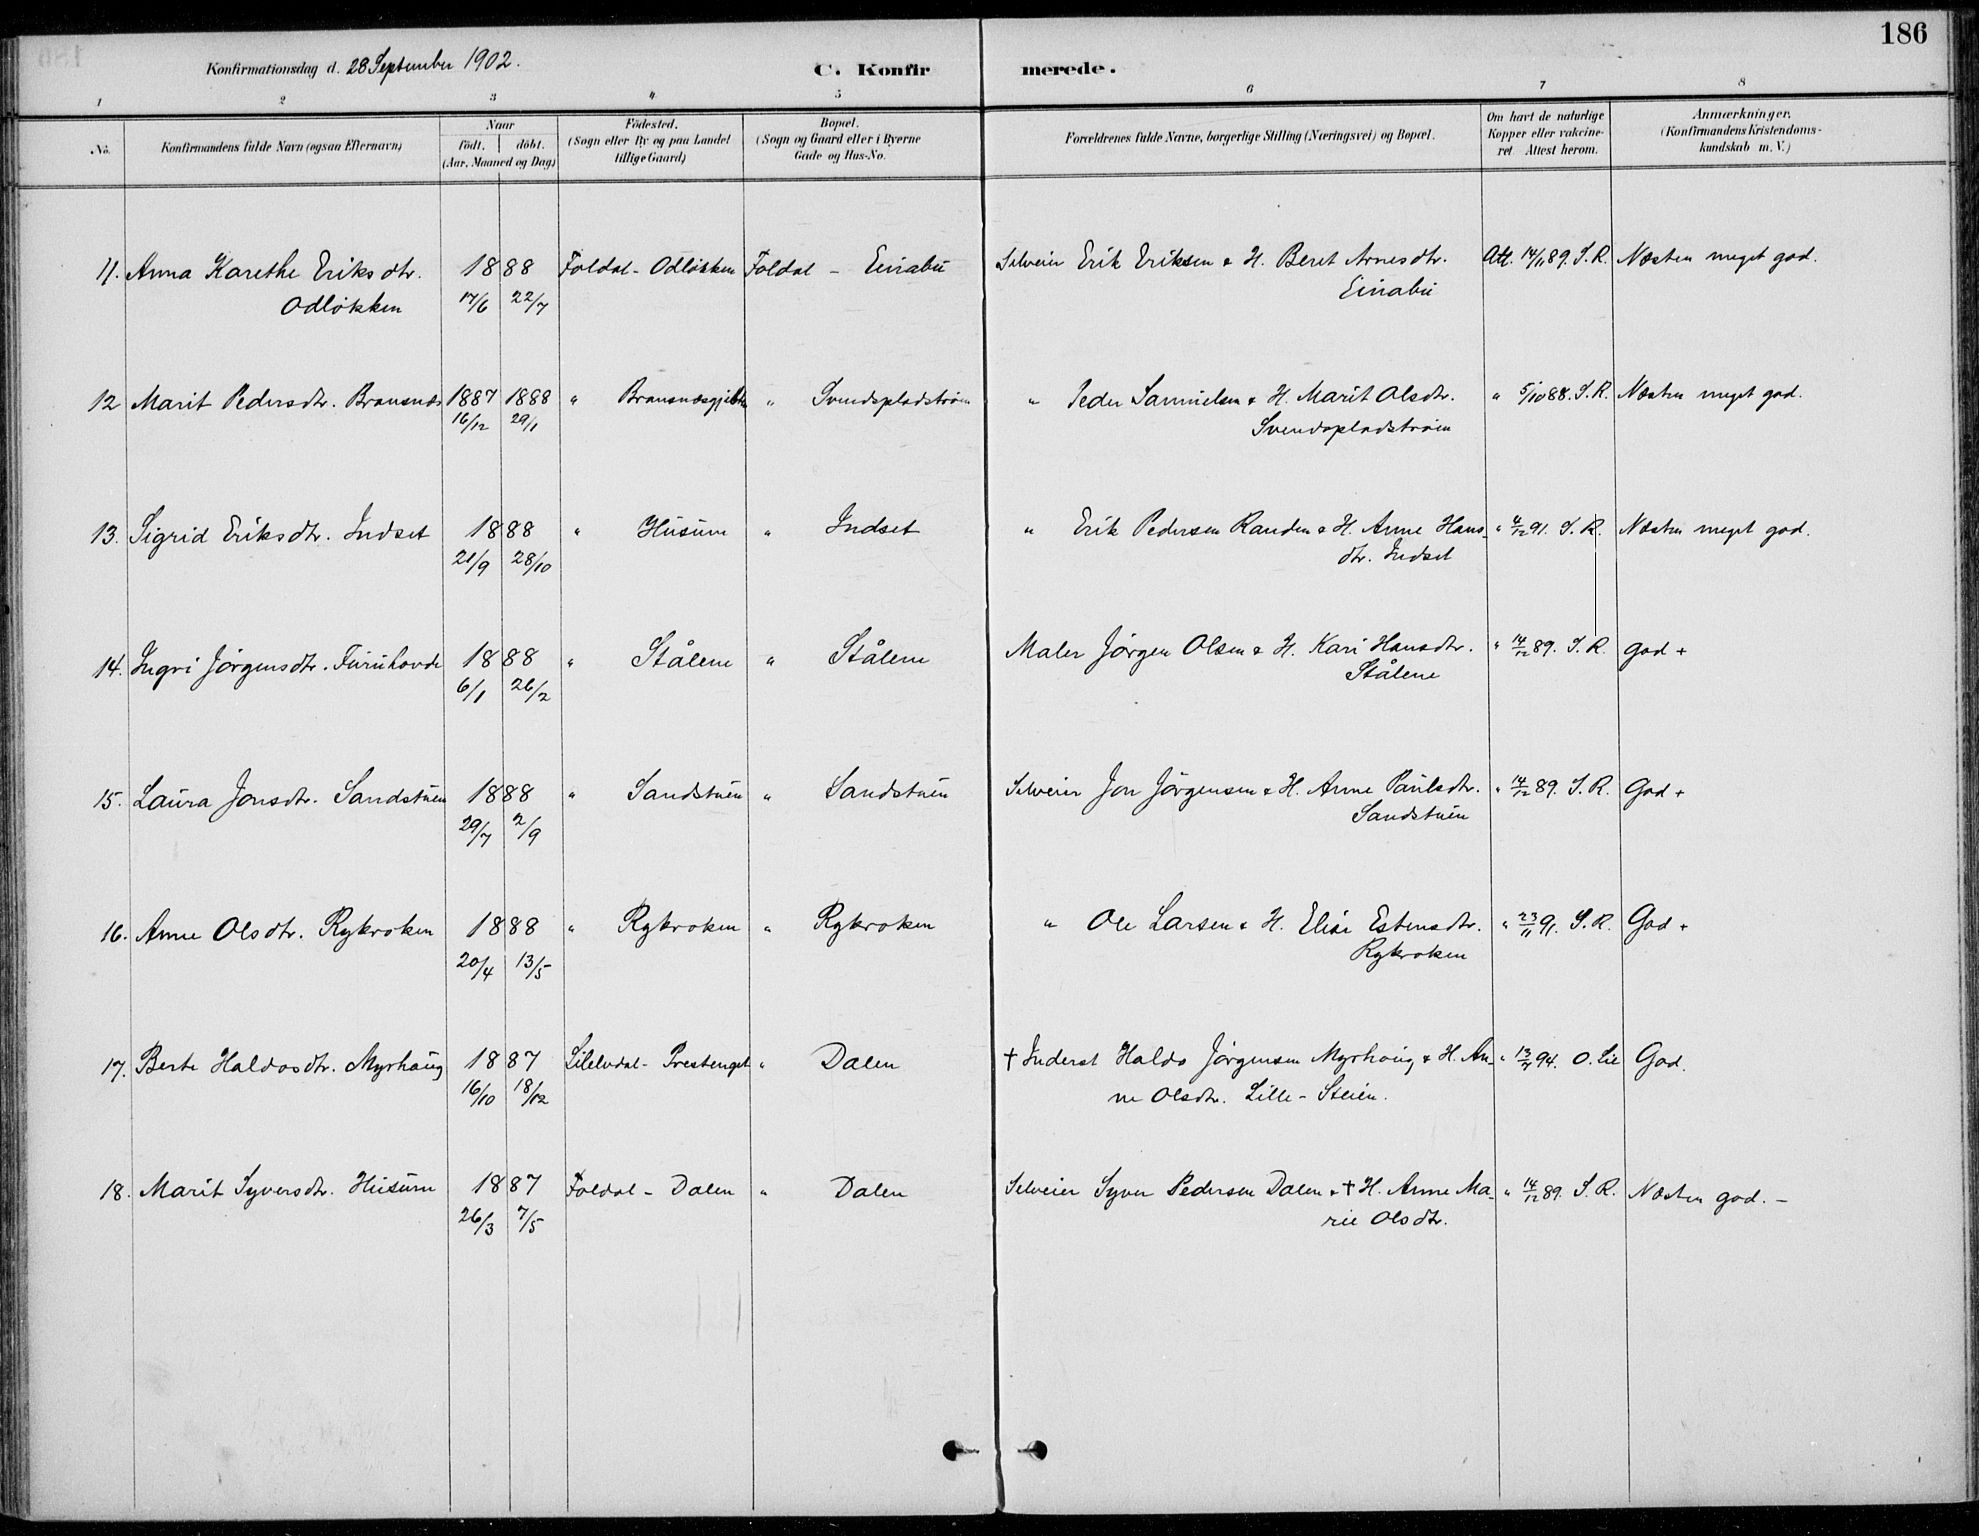 186
Konfirmationsdag d. 28 September 1902.
C. Konfir merede.
1 2 3 4 5 6 7 8
No.
Konfirmandens fulde Navn (ogsaa Efternavn)
Naar
födt. döbt.
(Aar, Maaned og Dag)
Födested.
(Sogn eller By og paa Landet
tillige Gaard)
Bopæl.
(Sogn og Gaard eller i Byerne
Gade og Hus-No.
Forældrenes fulde Navne, borgerlige Stilling (Næringsvei) og Bopæl.
Om havt de naturlige
Kopper eller vakcine-
ret. Attest herom.
Anmærkninger.
(Konfirmandens Kristendoms-
kundskab m. V.)
11. Anna Karethe Eriksdtr. 1888 Foldal - Odløkken Foldal - Einabu Selveier Erik Eriksen & H. Beret Arnesdtr. Att. 14/11 89. S. R. Næsten meget god.
Odløkken 17/6 22/7 Einabu
12 Marit Pedersdtr. Brænsnæs 1887 1888 " " Svendspladstrøen " Peder Samuelsen & H. Marit Olsdtr. " 5/10 88. S. R. Næsten meget god.
16/12 29/1 Svendspladstrøen
13. Sigrid Eriksdtr. Indset 1888 " Husum " Indset " Erik Pedersen Randen & H. Anne Hans- " 4/12 91. S. R. Næsten meget god.
21/9 28/10 dtr. Indset
14. Ingri Jørgensdtr. Furuhovde 1888 " Stålene " Stålene Maler Jørgen Olsen & H. Kari Hansdtr. " 14/12 89. S. R. god +
6/1 26/2 Stålene
15. Laura Jonsdtr. Sandstuen 1888 " Sandstuen " Sandstuen Selveier Jon Jørgensen & H. Anne Paulsdtr. " 14/12 89. S. R. God +
29/7 2/9 Sandstuen
16. Anne Olsdtr. Rykroken 1888 " Rykroken " Rykroken " Ole Larsen & H. Elise Estensdtr. " 23/11 91. S. R. God +
20/4 13/5 Rykroken
17. Berte Haldosdtr. Myrhaug 1887 Lilelvdal - Prestenget " Dalen † Inderst Haldo Jørgensen Myrhaug & H. An- " 13/7 94. O. Lie God.
16/10 18/12 ne Olsdtr. Lille-Steien.
18. Marit Syversdtr. Husum 1887 Foldal - Dalen " Dalen Selveier Syver Pedersen Dalen & † H. Anne Ma- " 14/12 89. S. R. Næsten god. -
26/3 7/5 rie Olsdtr.